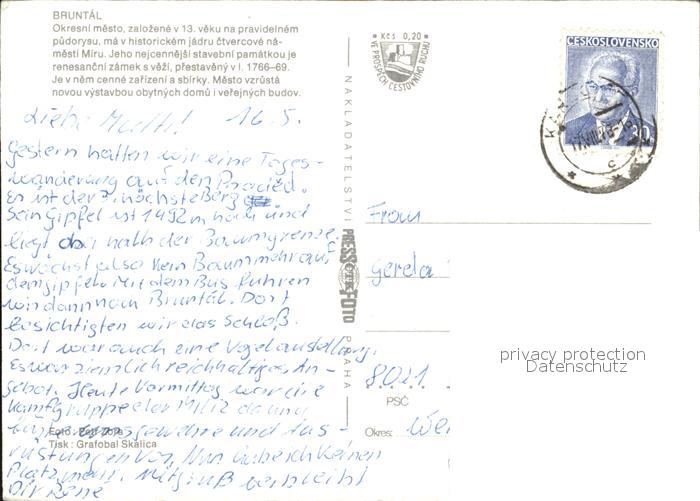 BRUNTÁL
Okresní město, založené v 13. věku na pravidelném
půdorysu, má v historickém jádru čtvercové ná-
městí Míru. Jeho nejcennější stavební památkou je
renesanční zámek s věží, přestavěný v l. 1766–69.
Je v něm cenné zařízení a sbírky. Město vzrůstá
novou výstavbou obytných domů i veřejných budov.
Liebe Mutti! 16. 5.
Gestern hatten wir eine Tages-
wanderung auf den Praděd.
Es ist der höchste Berg
Sein Gipfel ist 1492m hoch und
liegt oberhalb der Baumgrenze,
Es wächst also kein Baum mehr auf
dem Gipfel. Mit dem Bus fuhren
wir dann nach Bruntál. Dort
besichtigten wir das Schloß.
Dort war auch eine Vogelausstellung.
Es war ziemlich reichhaltiges An-
gebot. Heute Vormittag war eine
Kampfgruppe der Miliz da und
Gewehre und Aus-
rüstungen vor. Nun habe ich keinen
Platz mehr. Mit Gruß verbleibt
Dir Rene
Foto:
Tisk: Grafobal Skalica
NAKLADATELSTVÍ PRESSFOTO PRAHA
Kčs 0,20
VE PROSPĚCH CESTOVNÍHO RUCHU
ČESKOSLOVENSKO
30
Frau
Gerda
8021
PSČ
Okres:
privacy protection
Datenschutz